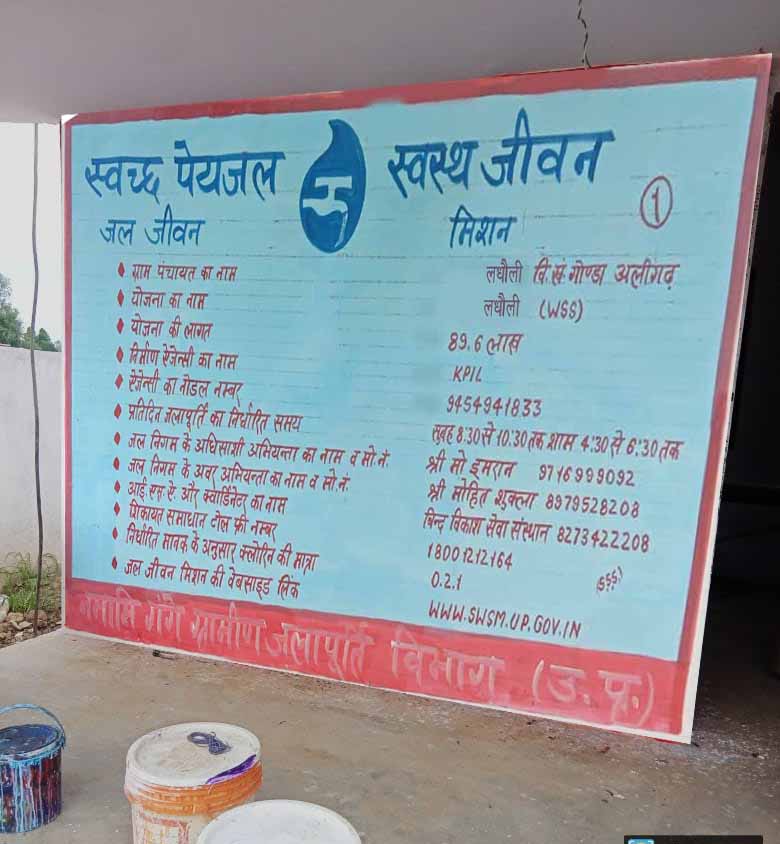 स्वच्छ पेयजल स्वस्थ जीवन
जल जीवन मिशन
1
ग्राम पंचायत का नाम लधौली वि.खं. गोण्डा अलीगढ़
योजना का नाम लधौली (WSS)
योजना की लागत 89.6 लाख
निर्माण ऐजेन्सी का नाम KPIL
ऐजेन्सी का नोडल नम्बर 9454941833
प्रतिदिन जलापूर्ति का निर्धारित समय सुबह 8:30 से 10:30 तक शाम 4:30 से 6:30 तक
जल निगम के अधिसाशी अभियन्ता का नाम व मो.नं. श्री मो इमरान 9716999092
जल निगम के अवर अभियन्ता का नाम व मो.नं. श्री मोहित शुक्ला 8979528208
आई.एस.ऐ. और क्वार्डिनेटर का नाम बिन्द विकाश सेवा संस्थान 8273422208
शिकायत समाधान टोल फ्री नम्बर 18001212164
निर्धारित मानक के अनुसार क्लोरिन की मात्रा 0.2.1
जल जीवन मिशन की वेबसाइड लिंक WWW.SWSM.UP.GOV.IN
नमामि गंगे ग्रामीण जलापूर्ति विभाग (उ.प्र.)